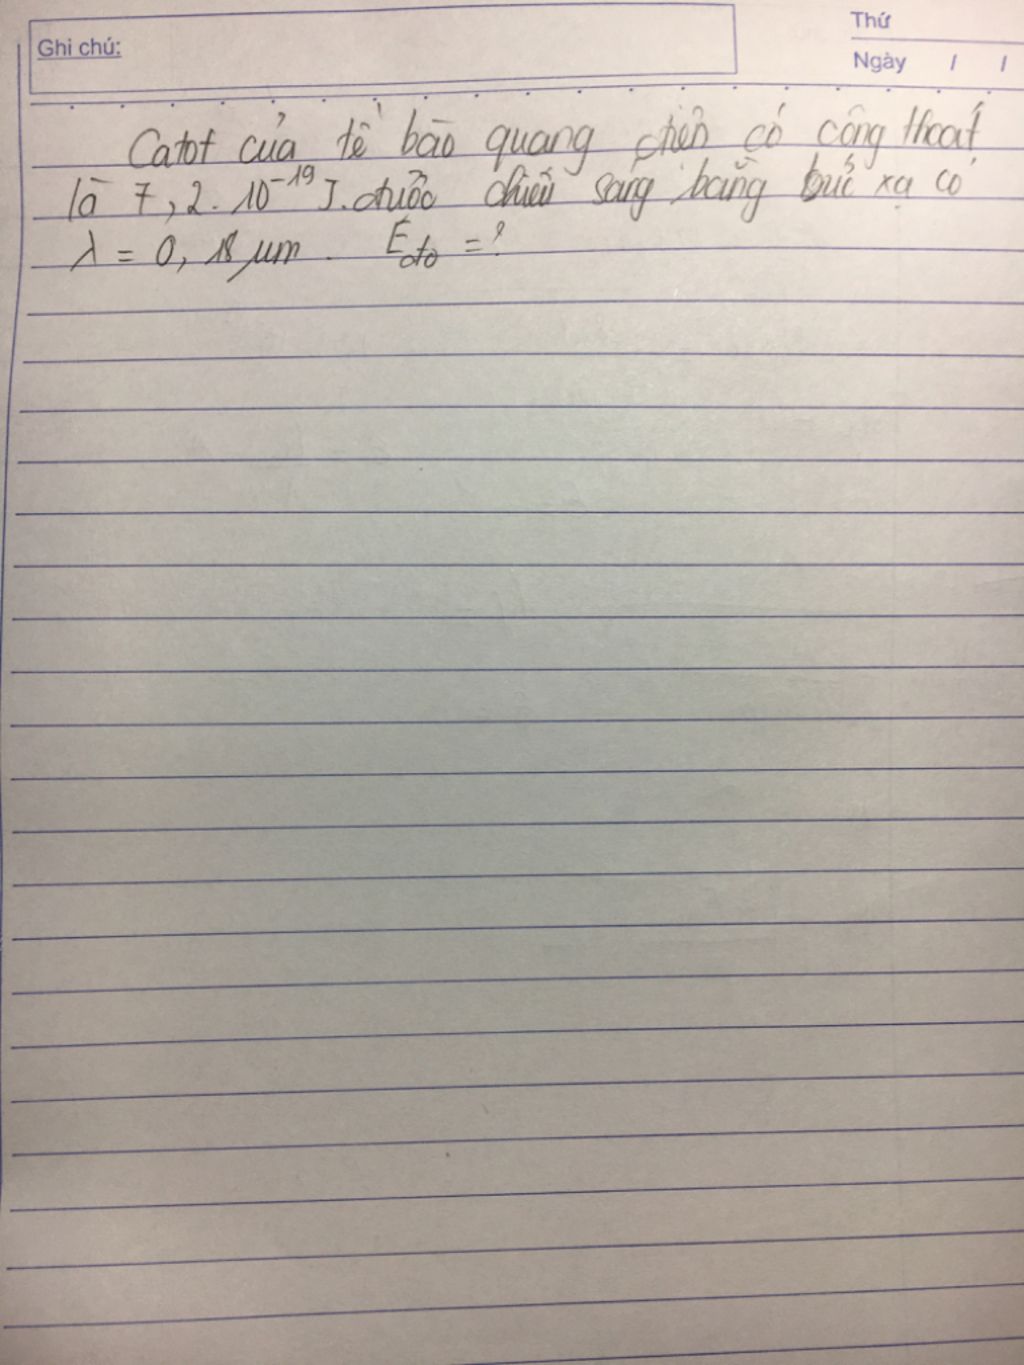 Thứ
Ghi chú:
Ngày / /
Catot của tế bào quang điện có công thoát
là 7,2.10⁻¹⁹ J. được chiếu sáng bằng bức xạ có
λ = 0,18 μm. Eđo = ?